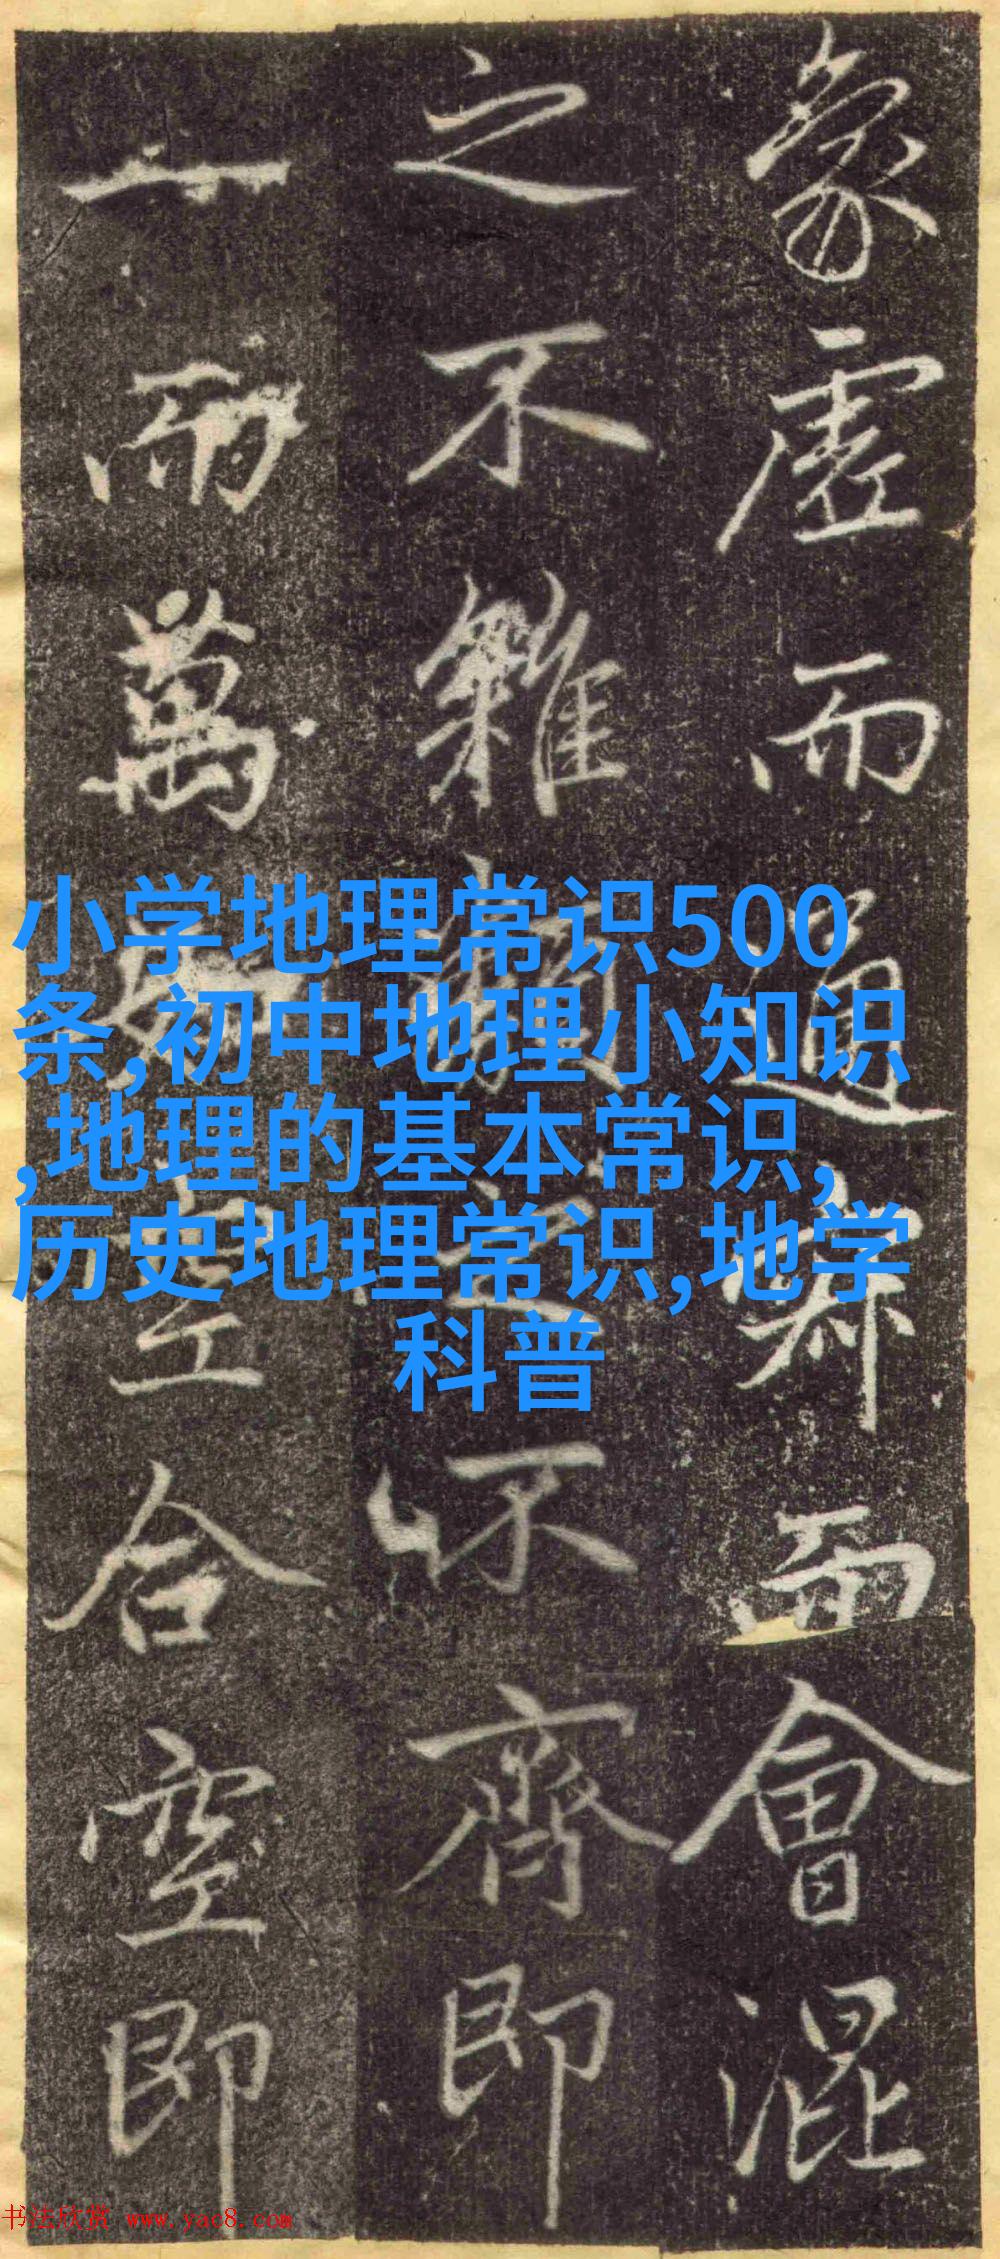 象虚而通寂而會混
之不雜
不齊即
一而萬
合空即
小学地理常识500
条,初中地理小知识
,地理的基本常识,
历史地理常识,地学
科普
书法欣赏 www.yac8.com